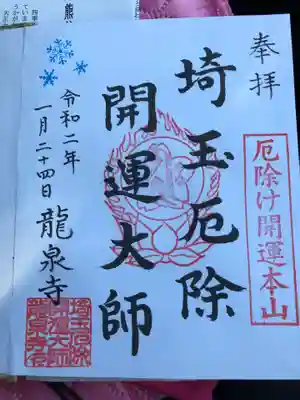 奉拝
厄除け開運本山
埼玉厄除
開運大師
令和二年
一月二十四日
龍泉寺